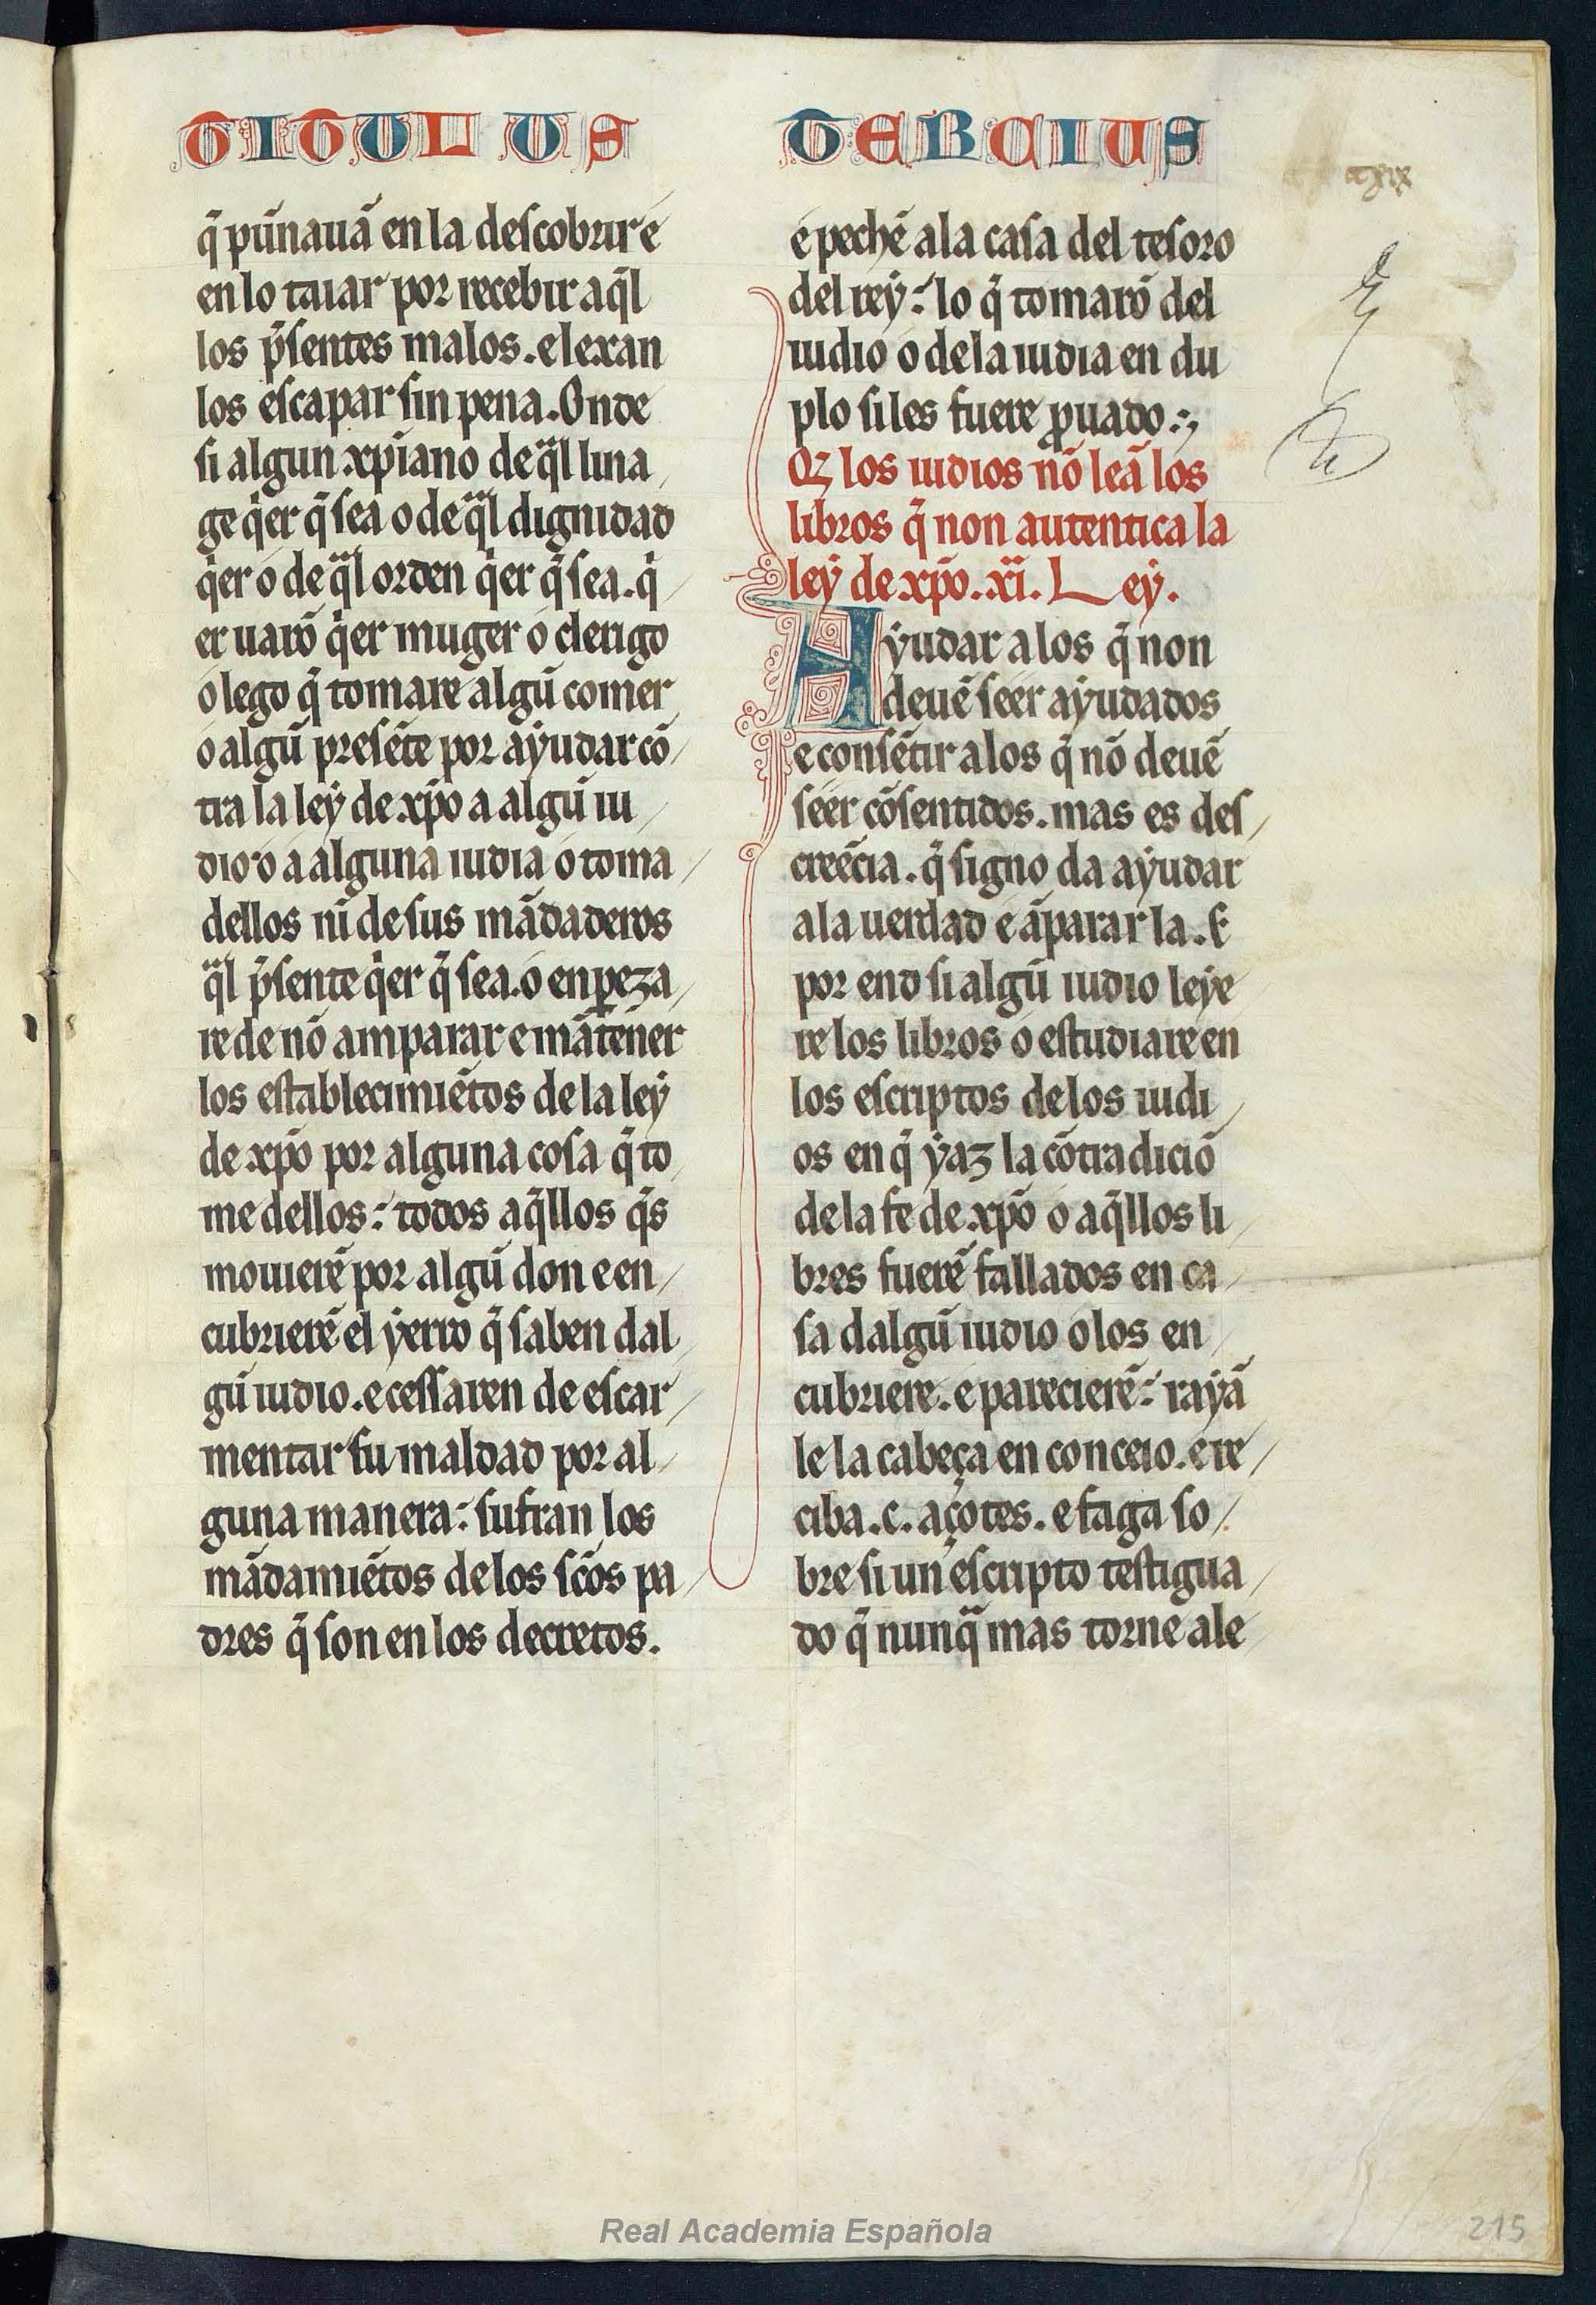 TITULUS TERCIUS
q̃ pũnauã en la deſcobrir é
en lo taiar por recebir aq̃l
los p̃ſentes malos. e lexan
los eſcapar ſin pena. Onde
ſi algun xp̃iano de q̃l lina
ge q̃er q̃ ſea o de q̃l dignidad
q̃er o de q̃l orden q̃er q̃ ſea. q̃
er uarõ q̃er muger o clerigo
o lego q̃ tomare algũ comer
o algũ preſẽte por aẏudar cõ
tra la leẏ de xp̃o a algũ iu
dio o a alguna iudia o toma
dellos nĩ de ſus mãdaderos
q̃l p̃ſente q̃er q̃ ſea. o enꝑeza
re de nõ amparar e mãtener
los eſtablecimiẽtos de la leẏ
de xp̃o por alguna coſa q̃ to
me dellos: todos aq̃llos q̃s
mouierẽ por algũ don e en
cubrierẽ el ẏerro q̃ ſaben dal
gũ iudio. e ceſſaren de eſcar
mentar ſu maldad por al
guna manera: ſufran los
mãdamiẽtos de los ſc̃os pa
dres q̃ ſon en los decretos.
é pechẽ a la caſa del teſoro
del reẏ: lo q̃ tomarõ del
iudio o de la iudia en du
plo ſi les fuere ꝓuado.
Qz los iudios nõ leã los
libros q̃ non autentica la
leẏ de xp̃o. xi. Leẏ.
Aẏudar a los q̃ non
deuẽ ſeer aẏudados
e conſẽtir a los q̃ nõ deuẽ
ſeer cõſentidos. mas es deſ
creẽcia. q̃ ſigno da aẏudar
a la uerdad e ãparar la. E
por end ſi algũ iudio leẏe
re los libros o eſtudiare en
los eſcriptos de los iudi
os en q̃ ẏaz la cõtradiciõ
de la fe de xp̃o o aq̃llos li
bres fuerẽ fallados en ca
ſa dalgũ iudio o los en
cubriere. e parecierẽ: raẏã
le la cabeça en conceio. e re
ciba .c. açotes. e faga ſo
bre ſi un eſcripto teſtigua
do q̃ nunq̃ mas torne a le
Real Academia Española
215